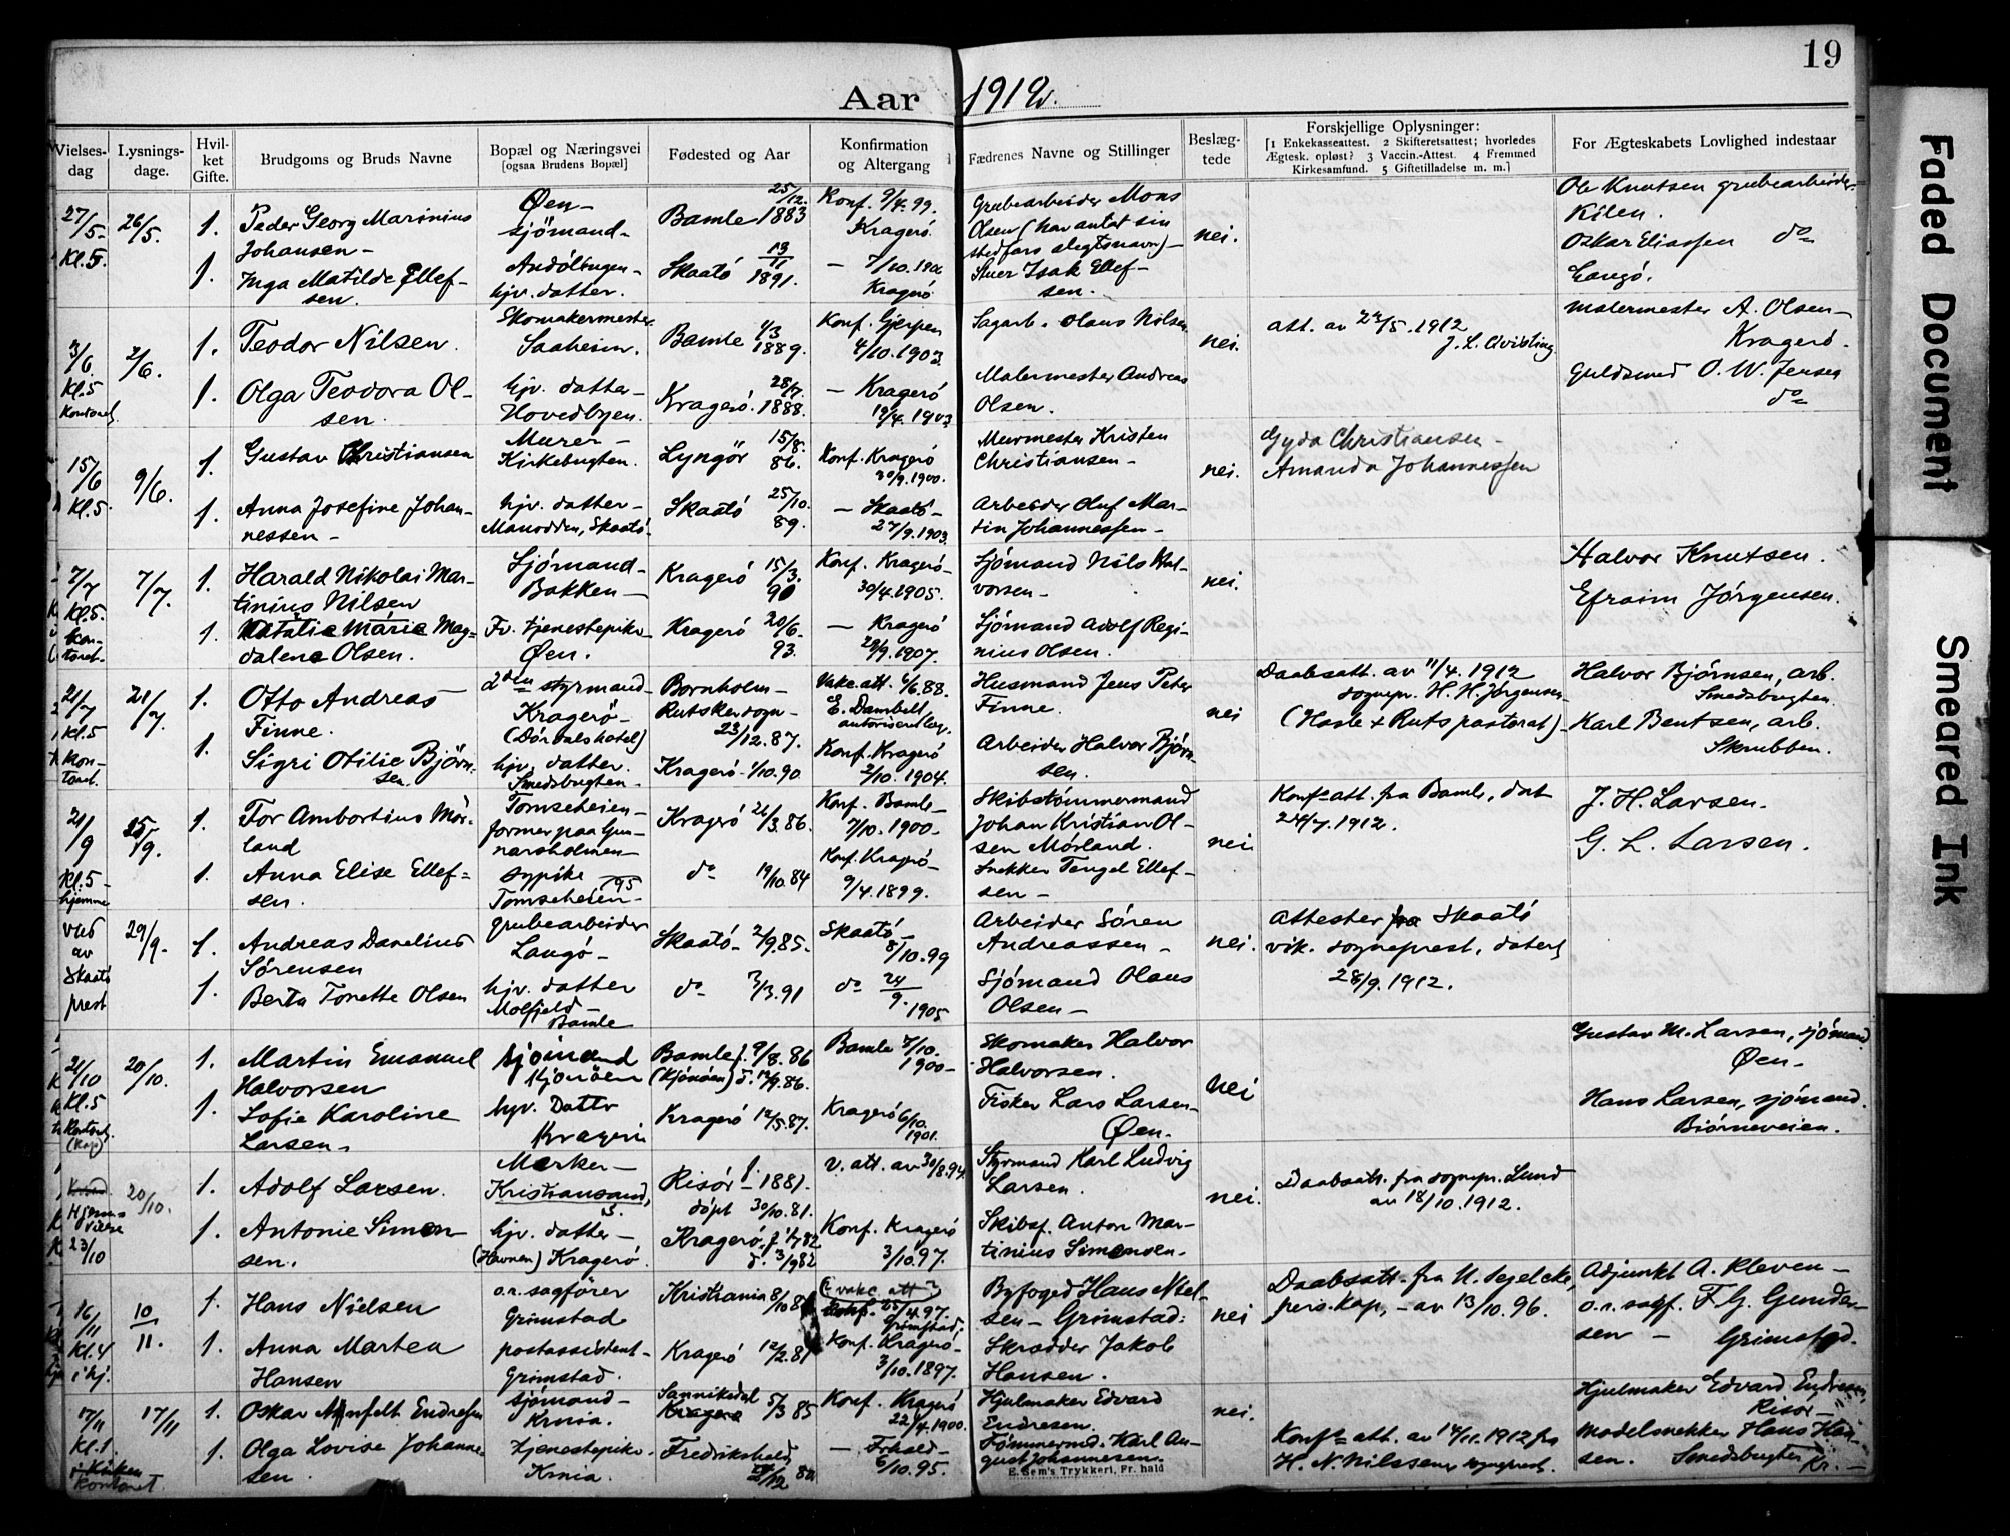 19
Aar 1912.
Vielses-dag
Lysnings-dage.
Hvilket Gifte.
Brudgoms og Bruds Navne
Bopæl og Næringsvei [ogsaa Brudens Bopæl]
Fødested og Aar
Konfirmation og Altergang
Fædrenes Navne og Stillinger
Beslægtede
Forskjellige Oplysninger:
[1 Enkekasseattest. 2 Skifteretsattest; hvorledes
Ægtesk. opløst? 3 Vaccin.-Attest. 4 Fremmed
Kirkesamfund. 5 Giftetilladelse m. m.]
For Ægteskabets Lovlighed indestaar
27/5. Kl. 5. 26/5.
1. Peder Georg Marinius Johansen – Øen – sjömand – Bamle 25/12. 1883 Konf. 9/4. 99. Kragerö.
Grubearbeider Mons Olsen (har antat sin stedfars slegtsnavn) – nei.
Ole Knutsen grubearbeider Kilen.
Oskar Eliassen do Langö.
1. Inga Matilde Ellefsen. hjv. datter. Skaatö 13/11 1891. – 7/10. Kragerö
Stuer Isak Ellefsen.
3/6. Kl. 5 Kontoret 2/6.
1. Teodor Nilsen. Skomakermester Saaheim. Bamle 4/3 1889. Konf. Gjerpen 4/10. 1903.
Sagarb. Olaus Nilsen nei. att. av 5. 1912
Malermester A. Olsen – Kragerö.
1. Olga Teodora Olsen. hjv. datter – Hovedbyen. Kragerö. 1888. – Kragerö 19/4. 1903
Malermester Andreas Olsen.
Guldsmed O. W. Jensen do
15/6 Kl. 5. 9/6.
1. Gustav Christiansen Murer – Kirkebugten. Lyngör 15/8. 86. Konf. Kragerö 30/9. 1900.
Murmester Kristen Christiansen – nei.
Gyda Christiansen –
Amanda Johannessen
1. Anna Josefine Johannessen – hjv. datter – Skaatö. Skaatö 25/10. 89. – Skaatö – 27/9. 1903.
Arbeider Oluf Martin Johannessen –
7/7 Kl. 5. Kontoret. 7/7.
1. Harald Nikolai Martinius Nilsen Sjömand – Bakken – Kragerö 15/3. 90 Konf. Kragerö – 30/4. 1905.
Sjömand Nils Halvorsen – nei.
Halvor Knutsen.
Efraim Jörgensen.
1. Natalie Marie Magdalene Olsen. Fv. tjenestepike – Øen. Kragerö 20/6. 93. – Kragerö 29/9. 1907.
Sjömand Adolf Reginius Olsen.
21/7 Kl. 5 Kontoret. 21/7.
1. Otto Andreas Finne. 2den styrmand – Kragerö – (Dördals hotel) Bornholm – Rutsker sogn – 23/12. 87. Vakc. att. 4/6. 88.
Husmand Jens Peter Finne. nei
Daabsatt. av 11/4. 1912
sognepr. H. H. Jörgensen
(Hasle + Ruts pastorat) –
Halvor Bjørnsen, arb. Smedsbugten.
Karl Bentsen, arb. Skrubben.
1. Sigri Otilie Björnsen. hjv. datter. Smedsbugten – Kragerö – 1/10. 90. Konf. Kragerö 2/10. 1904.
Arbeider Halvor Björnsen.
21/9 Kl. 5 – hjemme 15/9.
1. Tor Ambortius Mörland former paa Gunnarsholmen – Kragerö 26/3. 86. Konf. Bamle – 7/10. 1900 –
Skibstömmermand Johan Kristian Olsen Mörland. nei.
Konf-att. fra Bamle, dat 24/7. 1912.
J. H. Larsen.
G. L. Larsen.
1. Anna Elise Ellefsen. sypike do 19/10. 84 Konf. Kragerö – 9/4. 1899.
Snekker Tengel Ellefsen –
vies av Skaatö prest 29/9.
1. Andreas Danelius Sørensen grubearbeider Langö – Skaatö – 2/9. 85. Skaatö – 8/10. 99
Arbeider Sören Andreassen – nei.
Attester fra Skaatö
vik. sogneprest, datert
28/9. 1912.
1. Berta Tonette Olsen hjv. datter Bamle do 7/3. 91 do 24/9. 1905
Sjömand Olaus Olsen –
21/10 Kl. 5 Kontoret. 20/10.
1. Martin Emanuel Halvorsen sjömand Bamle f. 9/8. 86 d. 19/9. 86. Bamle 7/10. 1900 –
Skomaker Halvor Halvorsen. nei
Gustav M. Larsen, sjömand Øen –
1. Sofie Karoline Larsen – hjv. Datter Kragerö Kragerö 12/5. 87. Kragerö 6/10. 1901.
Fisker Lars Larsen – Øen.
Hans Larsen, sjömand. Bjørneveien.
Hjemmevielse 23/10 20/10.
1. Adolf Larsen. Merker – Kristiansand S. Risör 1881. döpt 30/10. 81. v. att. av 30/8. 94.
Styrmand Karl Ludvig Larsen. nei.
Daabsatt. fra sognepr. Lund
av 18/10. 1912.
1. Antonie Simonsen. hjv. datter – (Havnen) Kragerö. Kragerö, Konf. Kragerö 3/10. 97.
Skibsf. Anton Martinius Simonsen.
16/11 Kl. 4 i hj. 10/11.
1. Hans Nielsen o.r. sagförer Grimstad Kristiania 8/10 Grimstad.
Byfoged Hans Nielsen – Grimstad. nei
Daabsatt. fra
pers. kap, – av 13/10. 96.
Adjunkt A. Kleven –
o.r. sagf. F. G. Gundersen – Grimstad.
1. Anna Martea Hansen postassistent – Grimstad. Kragerö 12/2. 81 Konf. Kragerö – 3/10. 1897.
Skrædder Jakob Hansen.
17/11 Kl. 1. Kontoret. 17/11
1. Oskar Endresen sjömand – Krnia. Sannikedal 5/3 85 Konf. Kragerö 22/4. 1900.
Hjulmaker Edvard Endresen. nei.
Hjulmaker Edvard Endresen, Risör –
1. Olga Lovise Johannesen. tjenestepike. Krnia. Fredrikshald – Frhald – 6/10. 95.
Tömmermd. Karl August Johannesen.
Konf- att. av 14/11. 1912 fra
H. N. Nilssen, sogneprest.
Modelsnekker Hans Hansen. Smedsbugten Kr. –
E. Sem's Trykkeri, Fr.hald
Faded Document
Smeared Ink